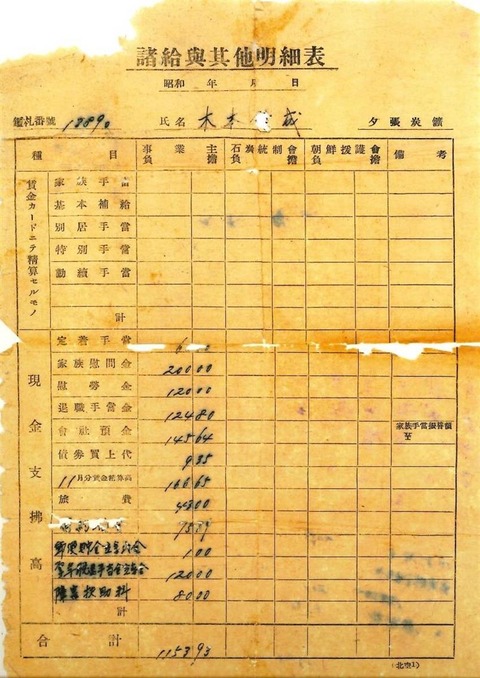 諸給與其他明細表
昭和 年 月 日
鑑札番號 1389 氏名 木本 成 夕張炭鑛
種目 事業主負擔 石炭統制會負擔 朝鮮援護會負擔 備考
賃金カードニテ精算セルモノ
家族手當
基本補給
別居手當
特別手當
勤續手當
計
現金支拂高
定着手當
家族慰問金 20000
慰勞金 12000
退職手當金 12480
會社預金 14564
家族手當振替額
至
債券買上代 935
11月分賃金精算高 16665
旅費
立替金 100
12000
障害扶助料 8000
計
合計 115393
(北京1)